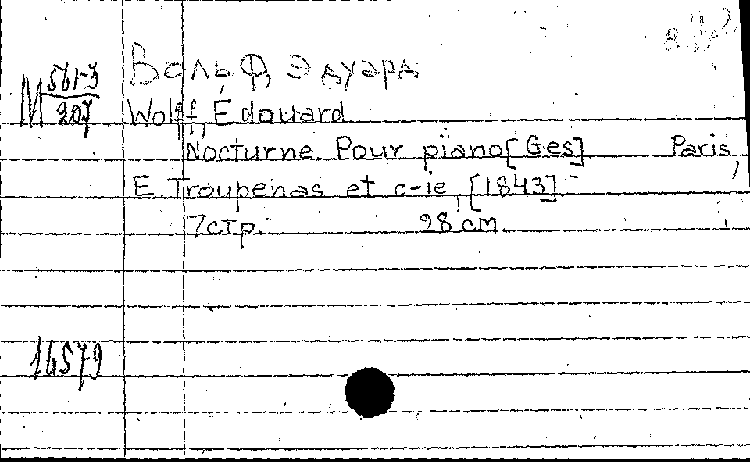 Вольф, Эдуард
M 561-3
207
Wolff, Edouard
Nocturne. Pour piano [Ges] Paris,
E. Troupenas et c-ie, [1843]
7 стр. 28 cm.
16579